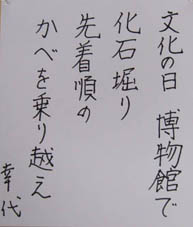 文化の日 博物館で
化石堀り
先着順の
かべを乗り越え
幸代